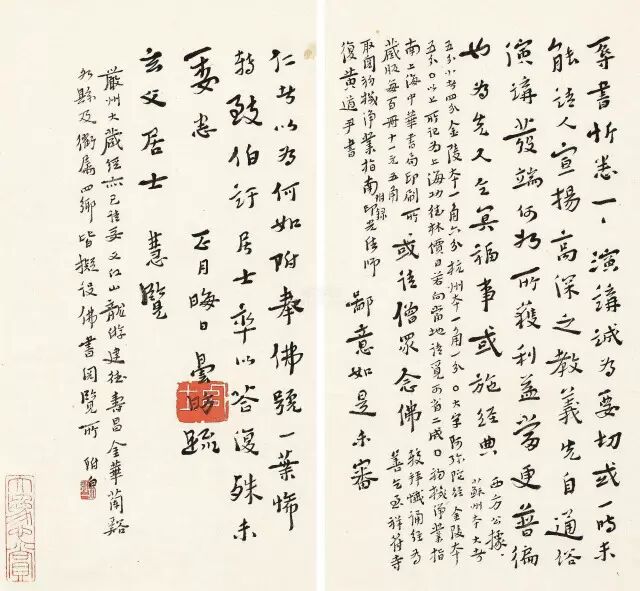 辱書忻悉一一演講誠為要切或一時未
能請人宣揚高深之教義先自通俗
演講發端何如所獲利益當更普徧
也為先人冥福事或施經典
西方公據
蘇州本大者
五分小者四分金陵本一角六分杭州本一角一分〇大字阿彌陀經金陵本
五分〇以上所記為上海功德林價目若向當地請買可省二成〇初機淨業指
南上海中華書局印刷所
藏版每百冊十一元五角
或請僧眾念佛
拜懺誦經為
善乞函祥符寺
取閱初機淨業指南附錄印光法師
復黃道尹書
鄙意如是未審
仁者以為何如附奉佛號一葉希
轉致伯訏居士率以答復殊未
委悉 正月晦日曇昉疏
玄父居士 慧覽
嚴州大藏經亦已請妥又江山龍游建德壽昌金華蘭谿
各縣及衢屬四鄉皆擬設佛書閱覽所 附白